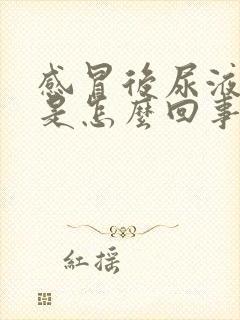 感冒後尿液
是怎麼回事
紅搖